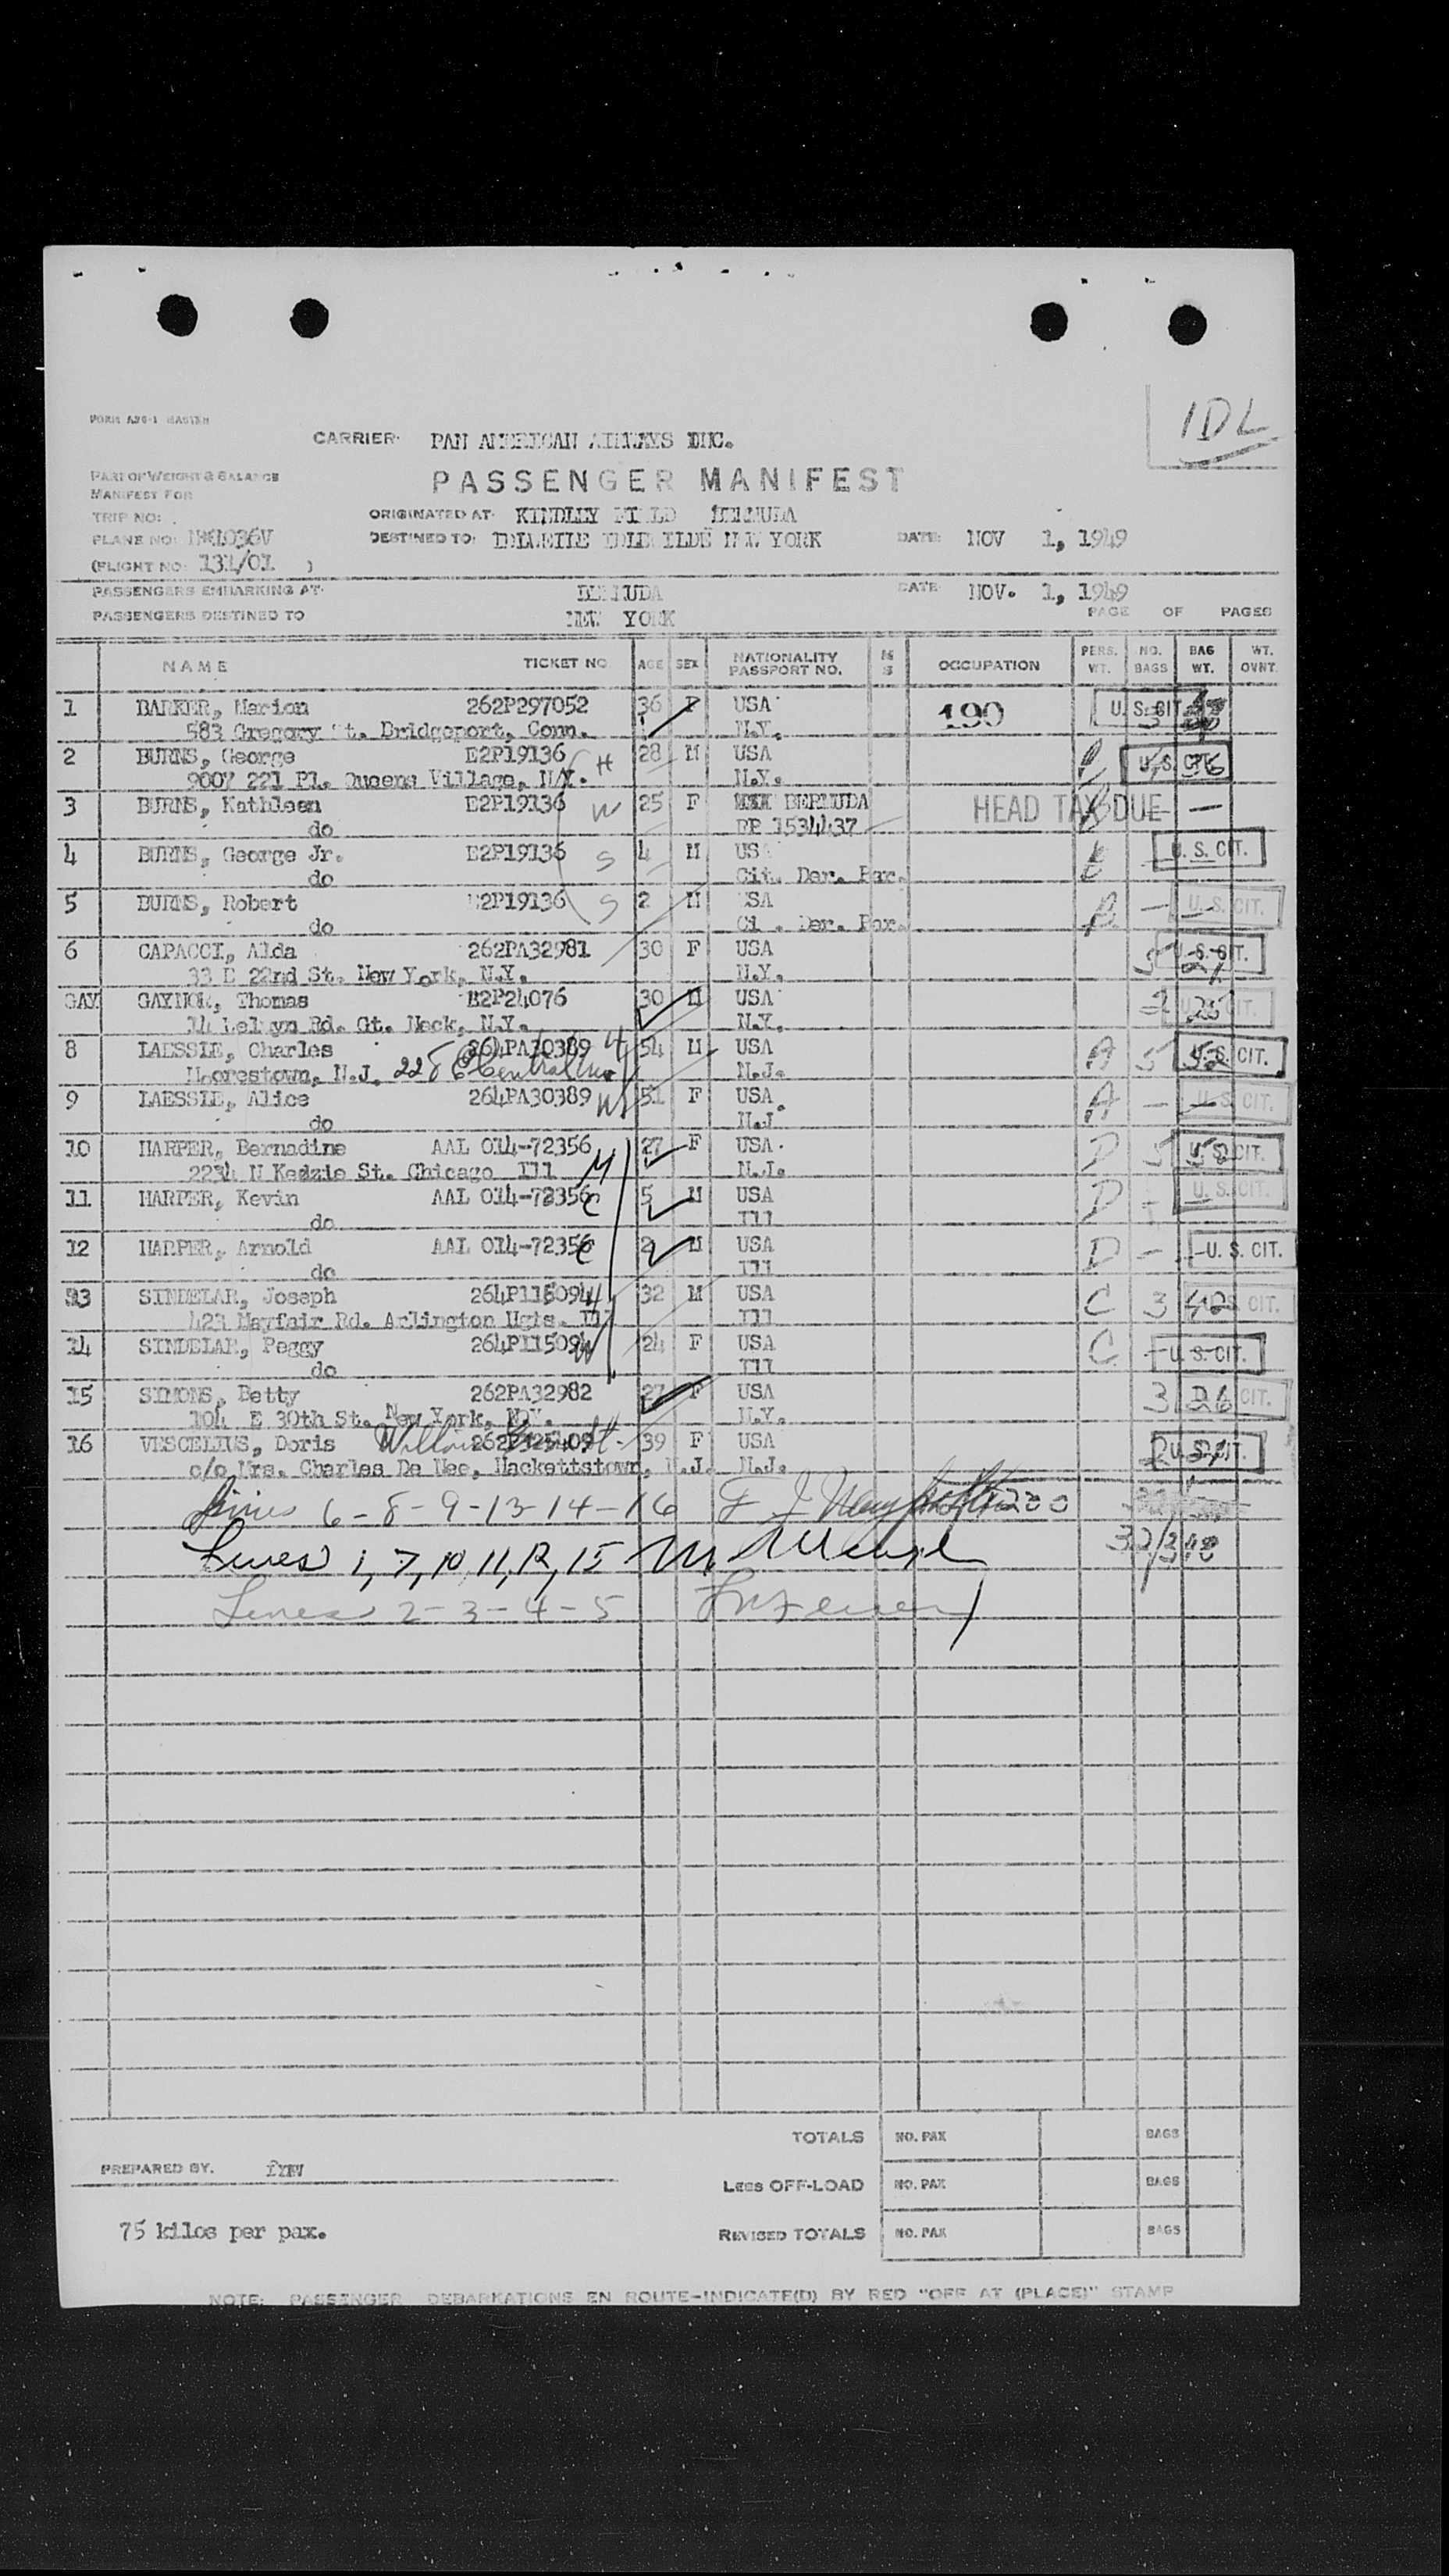 1DL
FORM A26-1 MASTER
CARRIER: PAN AMERICAN AIRWAYS INC.
PART OF WEIGHT & BALANCE
MANIFEST FOR
PASSENGER MANIFEST
TRIP NO:
ORIGINATED AT: KINDLEY FIELD BERMUDA
PLANE NO:
DESTINED TO: NEW YORK DATE: NOV 1, 1949
(FLIGHT NO: 131/01 )
PASSENGERS EMBARKING AT: BERMUDA DATE NOV. 1, 1949
PASSENGERS DESTINED TO NEW YORK PAGE OF PAGES
NAME TICKET NO. AGE SEX NATIONALITY PASSPORT NO. M S OCCUPATION PERS. WT. NO. BAGS BAG WT. WT. OVNT.
1 BARKER, Marion 262P297052 36 F USA 190 U. S. CIT.
583 Gregory St. Bridgeport, Conn. N.Y.
2 BURNS, George E2P19136 H 28 M USA U. S. CIT.
9007 221 Pl. Queens Village, N.Y. N.Y.
3 BURNS, Kathleen E2P19136 W 25 F BERMUDA HEAD TAX DUE —
do PP 1534437
4 BURNS, George Jr. E2P19136 S 4 M USA U. S. CIT.
do Cit. Der. Par.
5 BURNS, Robert E2P19136 S 2 M USA — U. S. CIT.
do Cit. Der. Par.
6 CAPACCI, Alda 262PA32981 30 F USA 5 21 U. S. CIT.
33 E 22nd St. New York, N.Y. N.Y.
GAY GAYNOR, Thomas E2P24076 30 M USA 2 U. S. CIT.
Rd. Gt. Neck, N.Y. N.Y.
8 LAESSLE, Charles 264PA30389 H 54 M USA A 5 52 U. S. CIT.
Moorestown, N.J. 228 E Central Ave N.J.
9 LAESSLE, Alice 264PA30389 W 51 F USA A — U. S. CIT.
do N.J.
10 HARPER, Bernadine AAL 014-72356 M 27 F USA D 5 U. S. CIT.
2234 N Kedzie St. Chicago Ill N.J.
11 HARPER, Kevin AAL 014-72356 C 5 M USA D - U. S. CIT.
do Ill
12 HARPER, Arnold AAL 014-72356 C 2 M USA D — U. S. CIT.
do Ill
13 SINDELAR, Joseph 264P115094 H 32 M USA C 3 42 U. S. CIT.
423 Mayfair Rd. Arlington Hgts. Ill Ill
14 SINDELAR, Peggy 264P115094 W 24 F USA C — U. S. CIT.
do Ill
15 SIMONS, Betty 262PA32982 27 F USA 3 26 U. S. CIT.
104 E 30th St. New York, N.Y. N.Y.
16 VESCELIUS, Doris 262P325409 39 F USA 2 U. S. CIT.
c/o Mrs. Charles De Nee, Hackettstown, N.J. N.J.
Lines 6-8-9-13-14-16
Lines 1, 7, 10, 11, 12, 15
Lines 2-3-4-5
TOTALS NO. PAX BAGS
PREPARED BY.
LESS OFF-LOAD NO. PAX BAGS
75 kilos per pax.
REVISED TOTALS NO. PAX BAGS
NOTE: PASSENGER DEBARKATIONS EN ROUTE-INDICATE(D) BY RED "OFF AT (PLACE)" STAMP